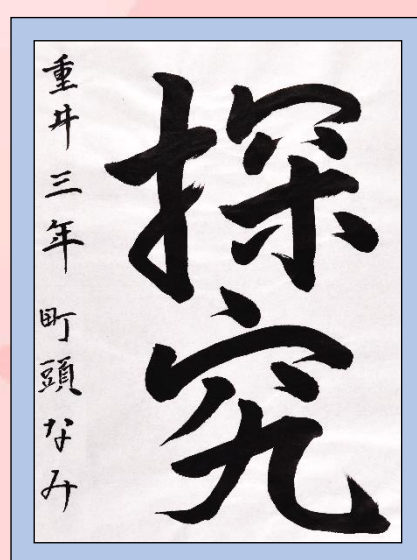 探究
重井三年 町頭なみ